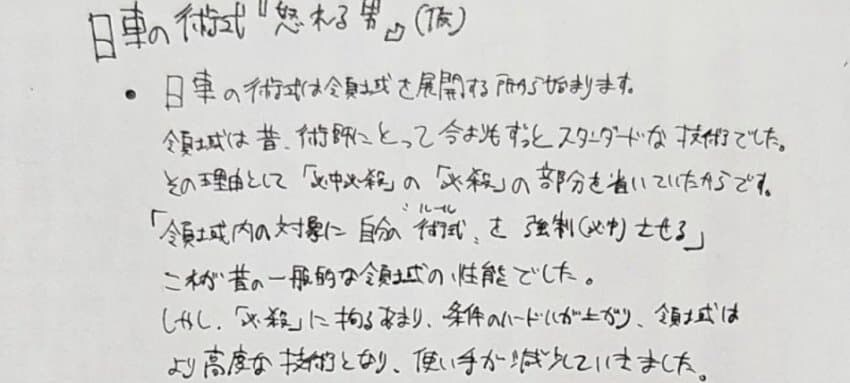 日車の術式『怒れる男』(仮)
• 日車の術式は領域を展開する所から始まります。
領域は昔、術師にとって今よりもずっとスタンダードな技術でした。
その理由として「必中必殺」の「必殺」の部分を省いていたからです。
「領域内の対象に自分の"術式"ルールを強制(必中)させる」
これが昔の一般的な領域の性能でした。
しかし、「必殺」に拘るあまり、条件のハードルが上がり、領域は
より高度な技術となり、使い手が減少していきました。